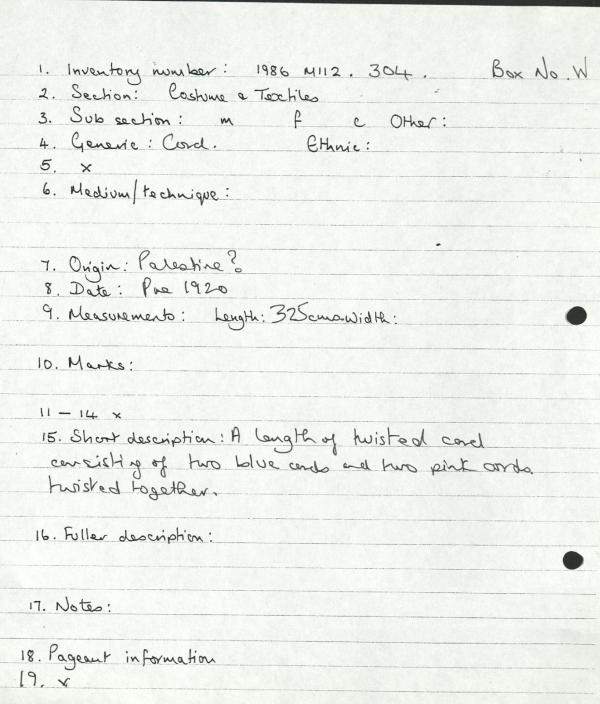 1. Inventory number: 1986 M112. 304. Box No. W
2. Section: Costume & Textiles
3. Sub section: m f c Other:
4. Generic: Cord. Ethnic:
5. x
6. Medium/technique:
7. Origin: Palestine?
8. Date: Pre 1920
9. Measurements: Length: 325cms. Width:
10. Marks:
11 - 14 x
15. Short description: A length of twisted cord
consisting of two blue cords and two pink cords
twisted together.
16. Fuller description:
17. Notes:
18. Pageant information
19. x